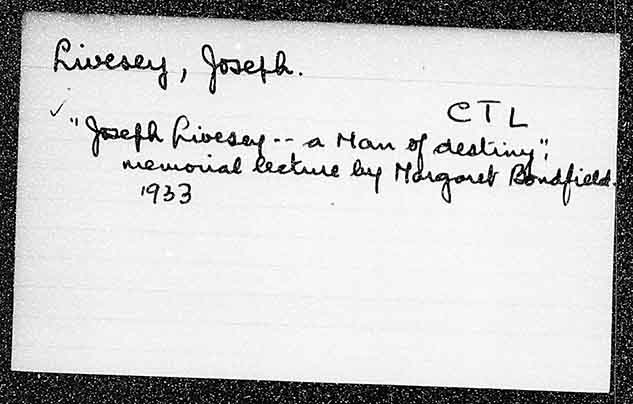 Livesey, Joseph.
CTL
✓ "Joseph Livesey -- a Man of destiny";
memorial lecture by Margaret Bondfield.
1933